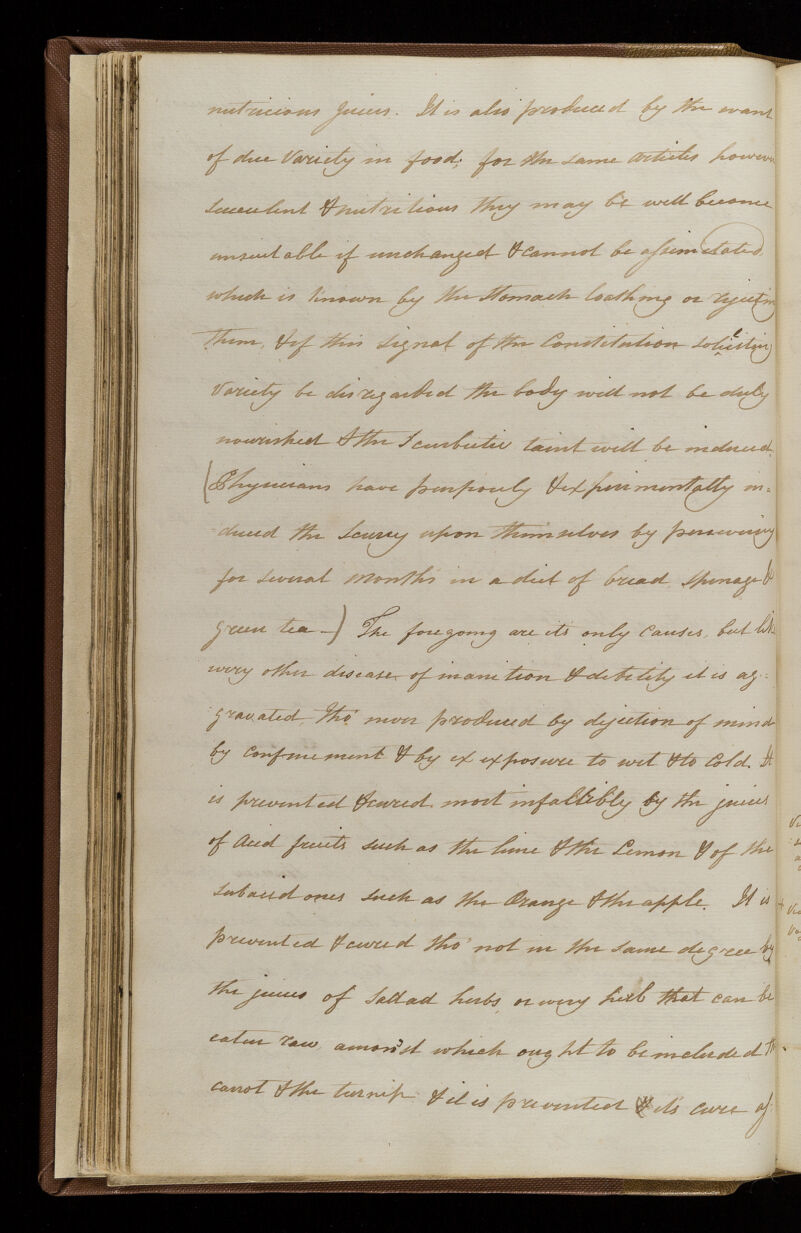 nutricious juices. It is also produced by the want
of due Variety in food; for the same articles however
succulent & nutritious they may be will become
unsuitable if unchanged & cannot be assimilated,
which is known by the Stomach loathing or rejecting
them, & if this signal of the Constitution soliciting
Variety be disregarded the body will not be duly
nourished & the Scurbutic taint will be induced.
(Physicians have purposely & experimentally in=
duced the Scurvy upon themselves by persevering
for several months in a diet of bread, spinage &
green tea —) The foregoing are its only causes, but like
every other disease of inanition & debility it is ag=
gravated tho' never produced by dejection of mind
by confinement & by ex exposure to wet & to Cold. It
is prevented & cured most infallibly by the juices
of Acid fruits such as the lime & the Lemon & of the
subacid ones such as the Orange & the apple. It is
prevented & cured tho' not in the same degree by
the juices of Sallad herbs, or every herb that can be
eaten raw amongst which ought to be included the
carrot & the turnip & it is prevented & its cure af